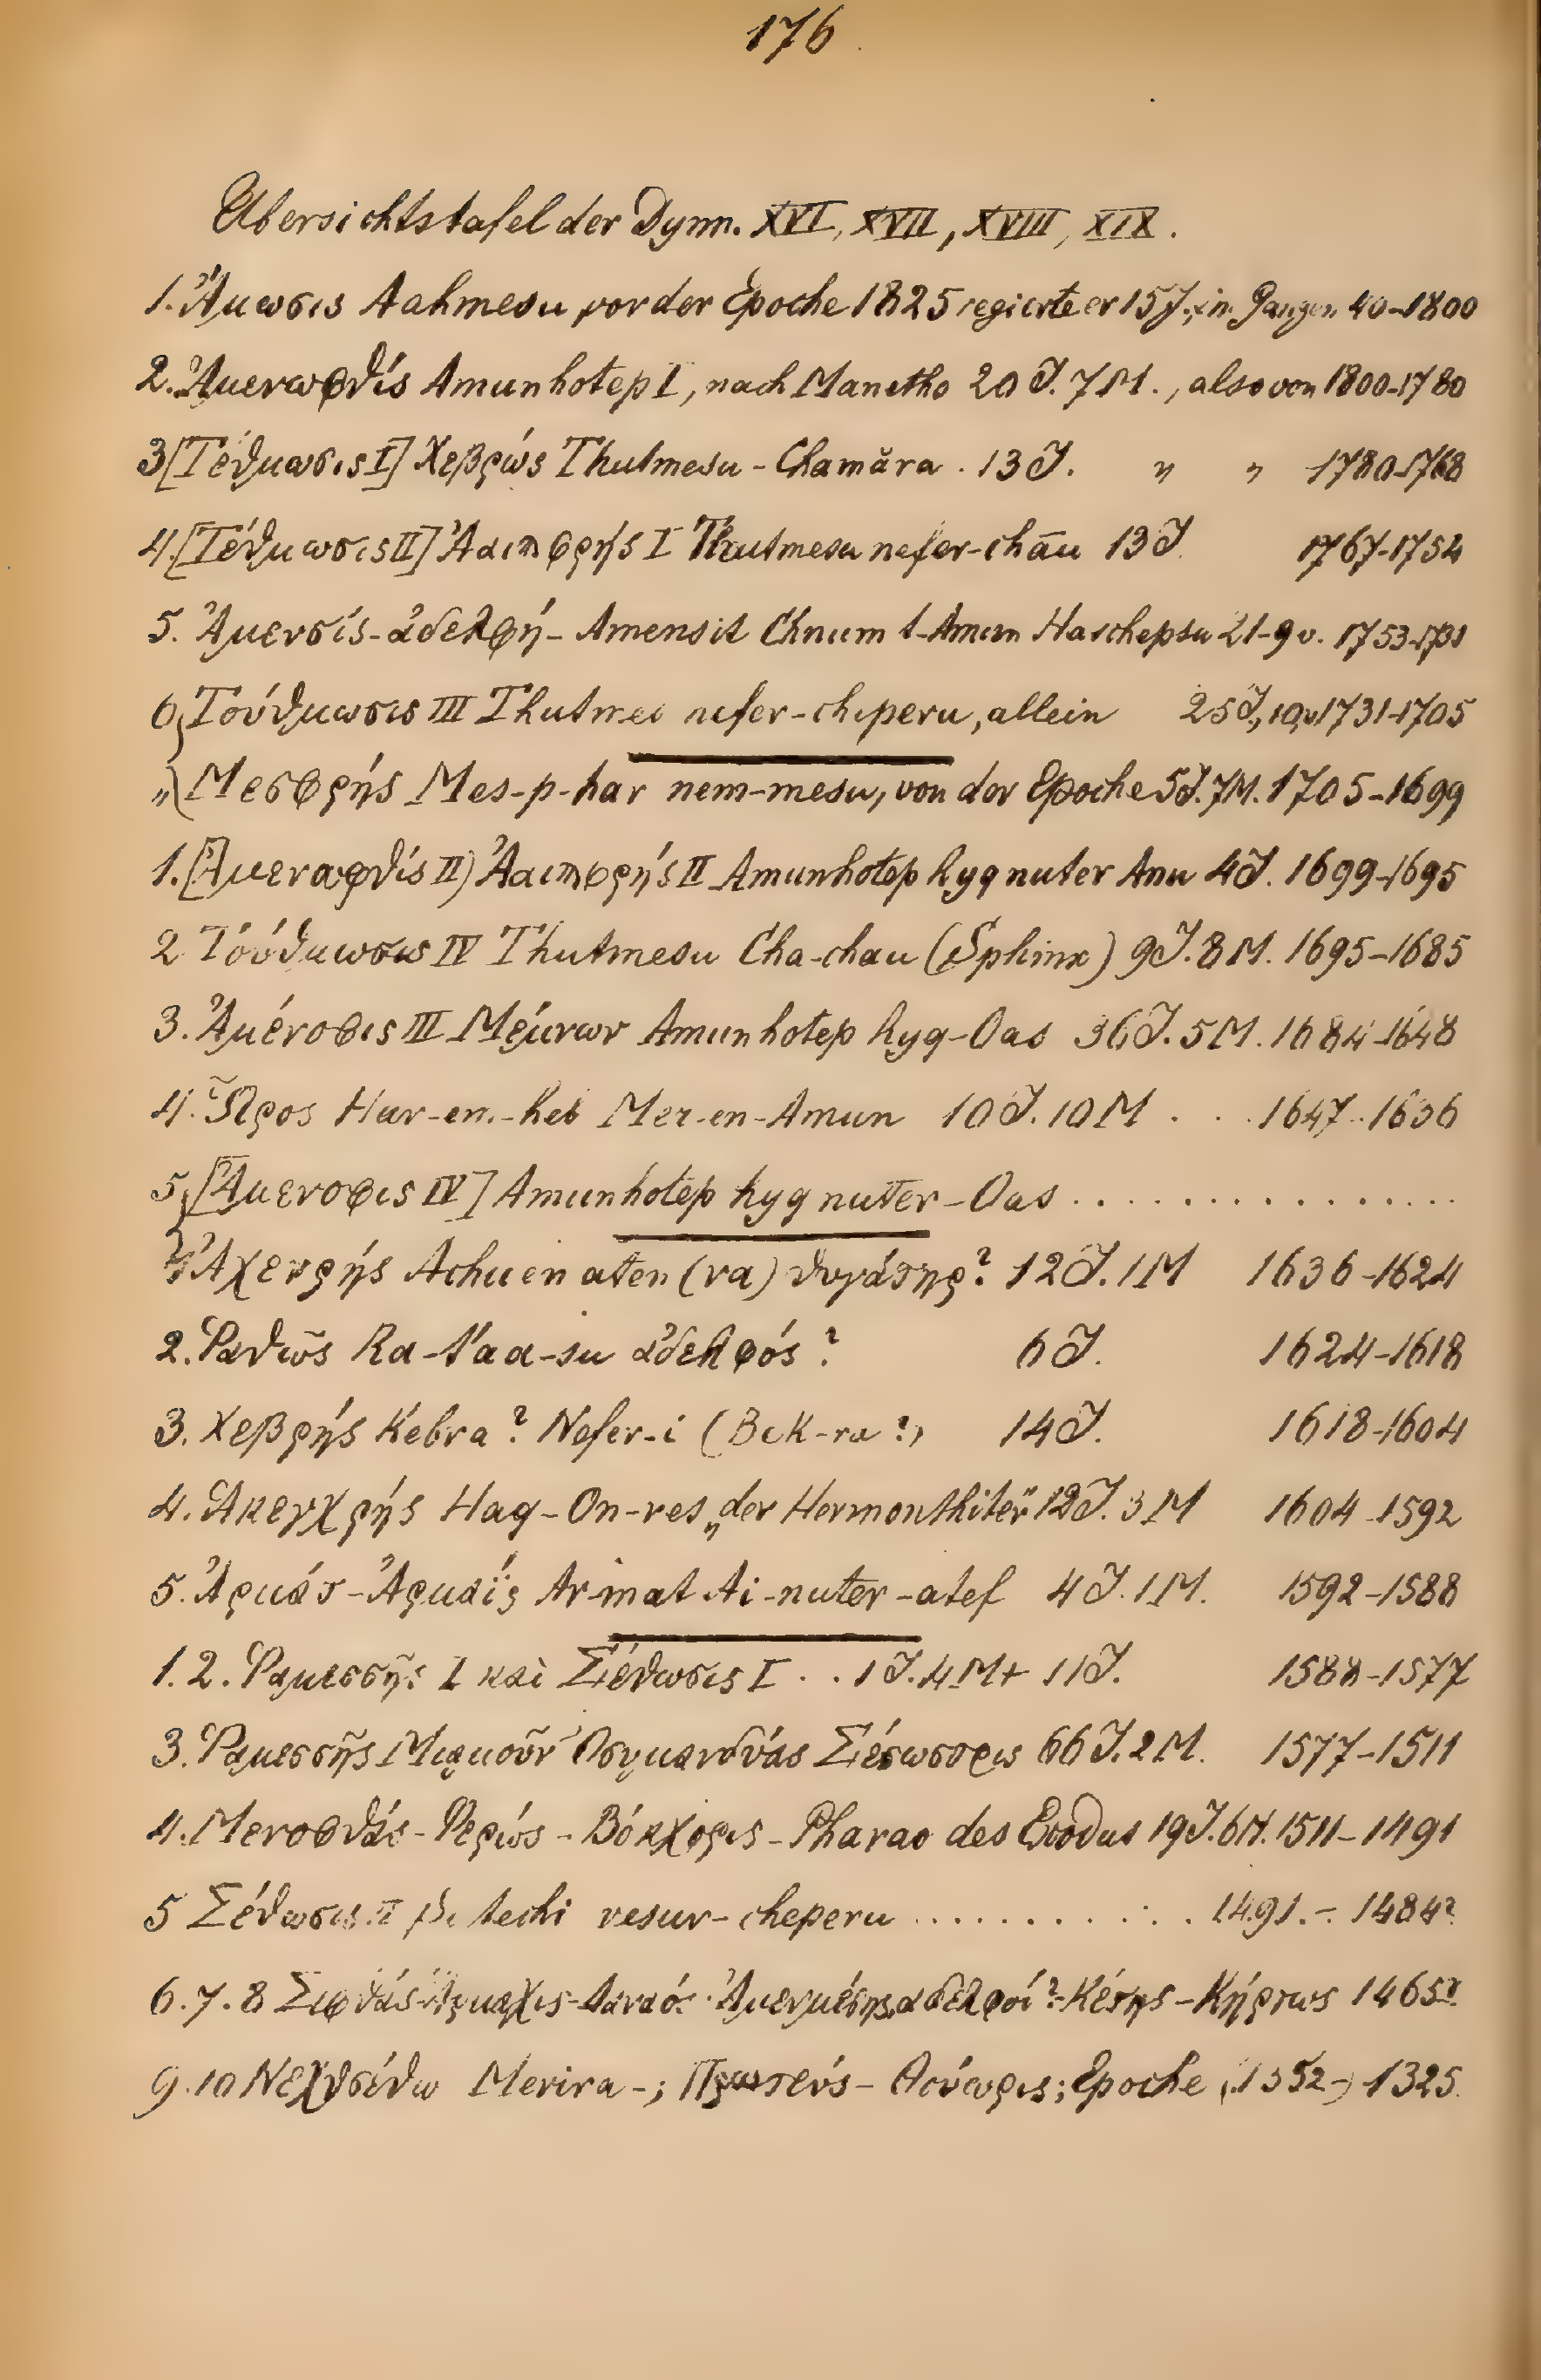 176
Übersichtstafel der Dynn. XVI, XVII, XVIII, XIX.
1. Ἄμωσις Aahmesu, vor der Epoche 1825 regierte er 15 J., im Ganzen 40-1800
2. Ἀμενωφθίς Amunhotep I, nach Manetho 20 J. 7 M., also von 1800-1780
3 [Τέθμωσις I] Χεβρώς Thutmesu-Chamăra. 13 J. " " 1780-1768
4. [Τέθμωσις II] Ἀσιπφρής I Thutmesu nefer-chāu 13 J. 1767-1754
5. Ἀμενσίς-ἀδελφή- Amensit Chnum t-Amun Haschepsu 21-9 v. 1753-1731
6, Τούθμωσις III Thutmes nefer-cheperu, allein 25 J., 1731-1705
" Μεσφρής Mes-p-har nem-mesu, von der Epoche 5 J. 7 M. 1705-1699
1. [Ἀμενωφθίς II) Ἀσιπφρής II Amunhotep hyq nuter Anu 4 J. 1699-1695
2 Τούθμωσις IV Thutmesu Cha-chau (Sphinx) 9 J. 8 M. 1695-1685
3. Ἀμένοφις III Μέμνων Amunhotep hyq-Oas 36 J. 5 M. 1684-1648
4. Ὧρος Har-em-heb Mer-en-Amun 10 J. 10 M . . . 1647-1636
5, [Ἀμενοφις IV] Amunhotep hyq nuter-Oas . . . . . . . . . . . . . . . .
Ἀχενρής Achuen aten (ra) θυγάτηρ? 12 J. 1 M 1636-1624
2. Ῥαθῶς Ra-t'aa-su ἀδελφός? 6 J. 1624-1618
3. Χεβρής Kebra? Nefer-i (Bek-ra?) 14 J. 1618-1604
4. Ἀκεγχρής Haq-On-res „der Hermonthiter“ 12 J. 3 M 1604-1592
5. Ἀρμάτ-Ἀρμαΐς Ar-mat Ai-nuter-atef 4 J. 1 M. 1592-1588
1. 2. Ῥαμεσσῆς I καὶ Σέθωσις I . . 1 J. 4 M + 11 J. 1588-1577
3. Ῥαμεσσῆς Μιαμοῦν Ὀσυμανδύας Σέσωστρις 66 J. 2 M. 1577-1511
4. Μενοφθάς-Φερώς-Βόκχορις-Pharao des Exodus 19 J. 6 M. 1511-1491
5 Σέθωσις II techi vesur-cheperu . . . . . . . . . . . . 1491.-1484?
6. 7. 8 Σιφθάς-Ἀρμαχις-Δαναός. Ἀμενμέσης ἀδελφοί?-Κέτης-Κήρτως 1465?
9. 10 Νεχθσέθω Merira-; Πρωτεύς-Θούωρις; Epoche (1352-) 1325.